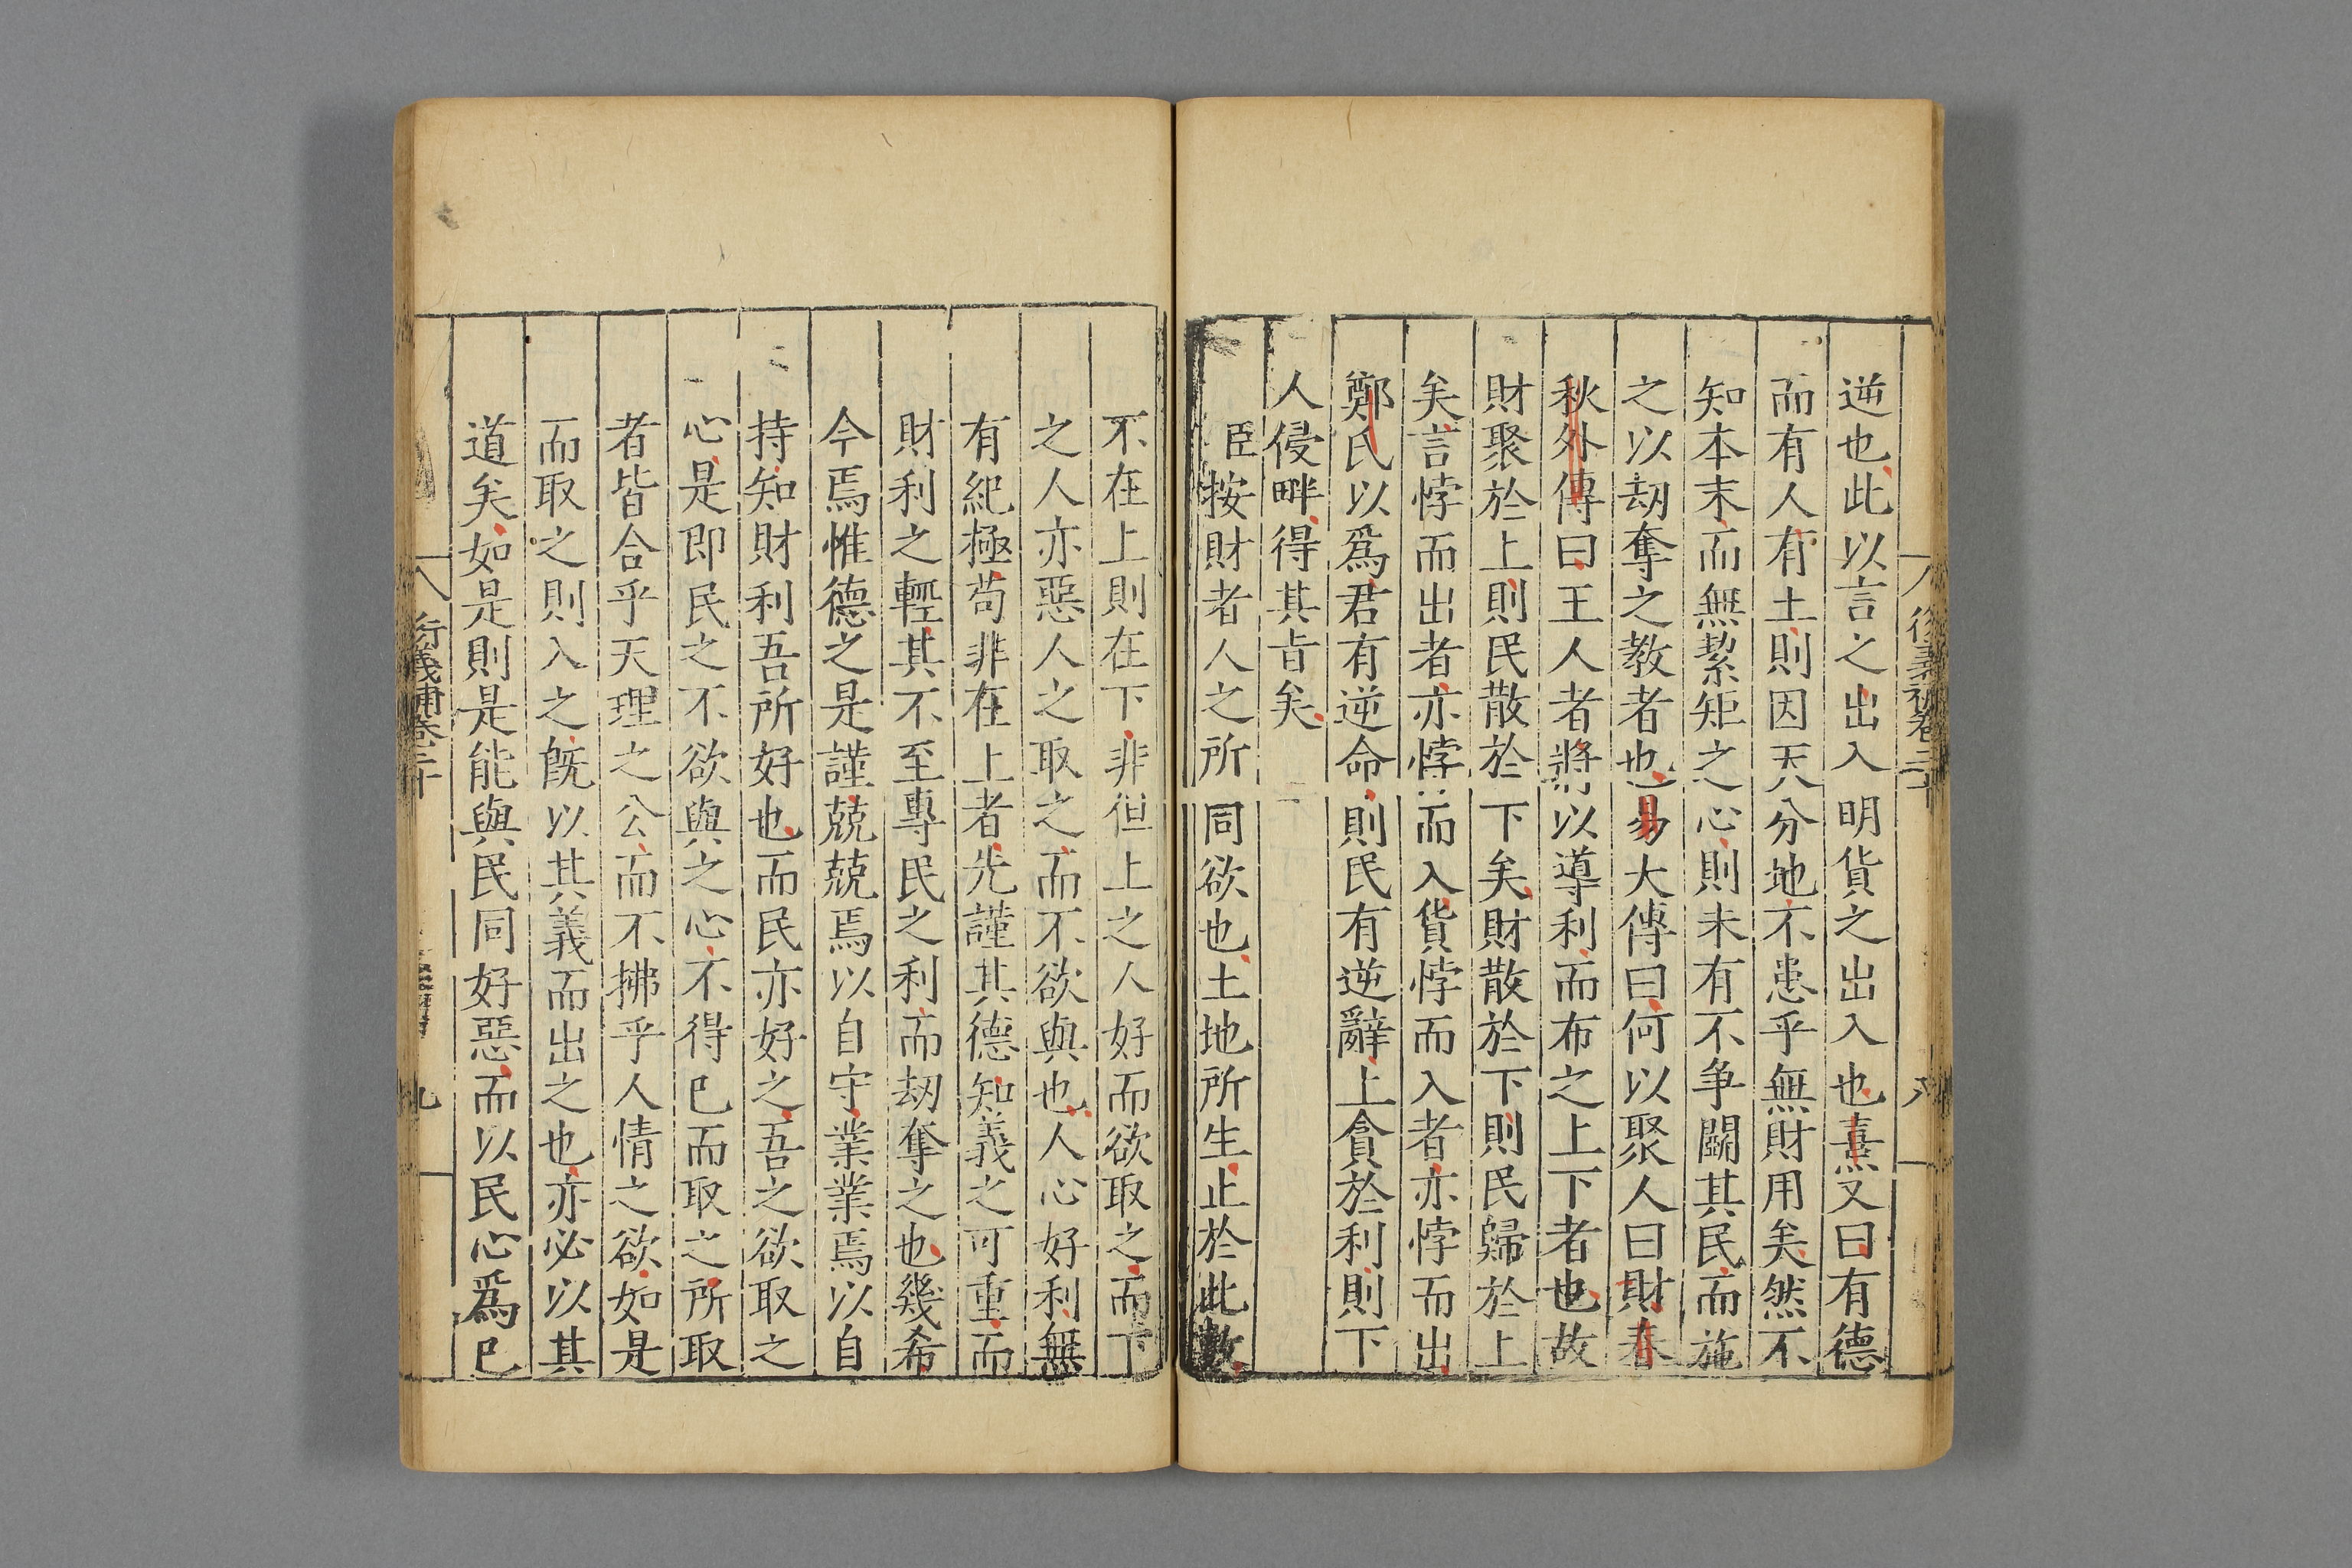 逆也此以言之出入明貨之出入也熹又曰有德
而有人有土則因天分地不患乎無財用矣然不
知本末而無絜矩之心則未有不爭鬬其民而施
之以刼奪之教者也易大傳曰何以聚人曰財春
秋外傳曰王人者將以導利而布之上下者也故
財聚於上則民散於下矣財散於下則民歸於上
矣言悖而出者亦悖而入貨悖而入者亦悖而出
鄭氏以爲君有逆命則民有逆辭上貪於利則下
人侵畔得其旨矣
臣按財者人之所同欲也土地所生止於此數
不在上則在下非但上之人好而欲取之而下
之人亦惡人之取之而不欲與也人心好利無
有紀極苟非在上者先謹其德知義之可重而
財利之輕其不至專民之利而刼奪之也幾希
今焉惟德之是謹兢兢焉以自守業業焉以自
持知財利吾所好也而民亦好之吾之欲取之
心是即民之不欲與之心不得已而取之所取
者皆合乎天理之公而不拂乎人情之欲如是
而取之則入之既以其義而出之也亦必以其
道矣如是則是能與民同好惡而以民心爲已
衍義補卷二十
九